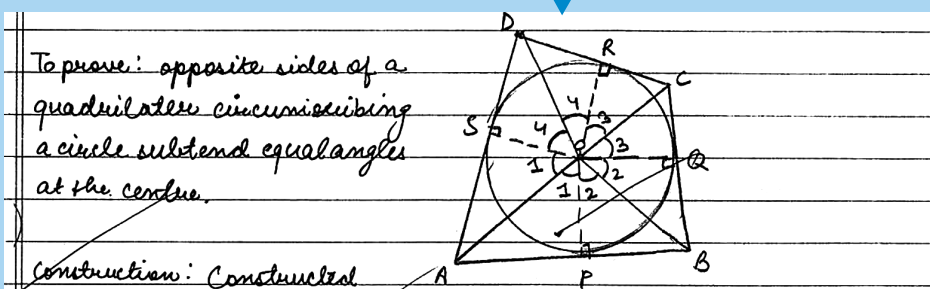 To prove: opposite sides of a
quadrilater circumiscribing
a circle subtend equal angles
at the centre.
Construction: Constructed
D
R
C
S
4
3
4
O
3
Q
1
2
1
2
A
P
B